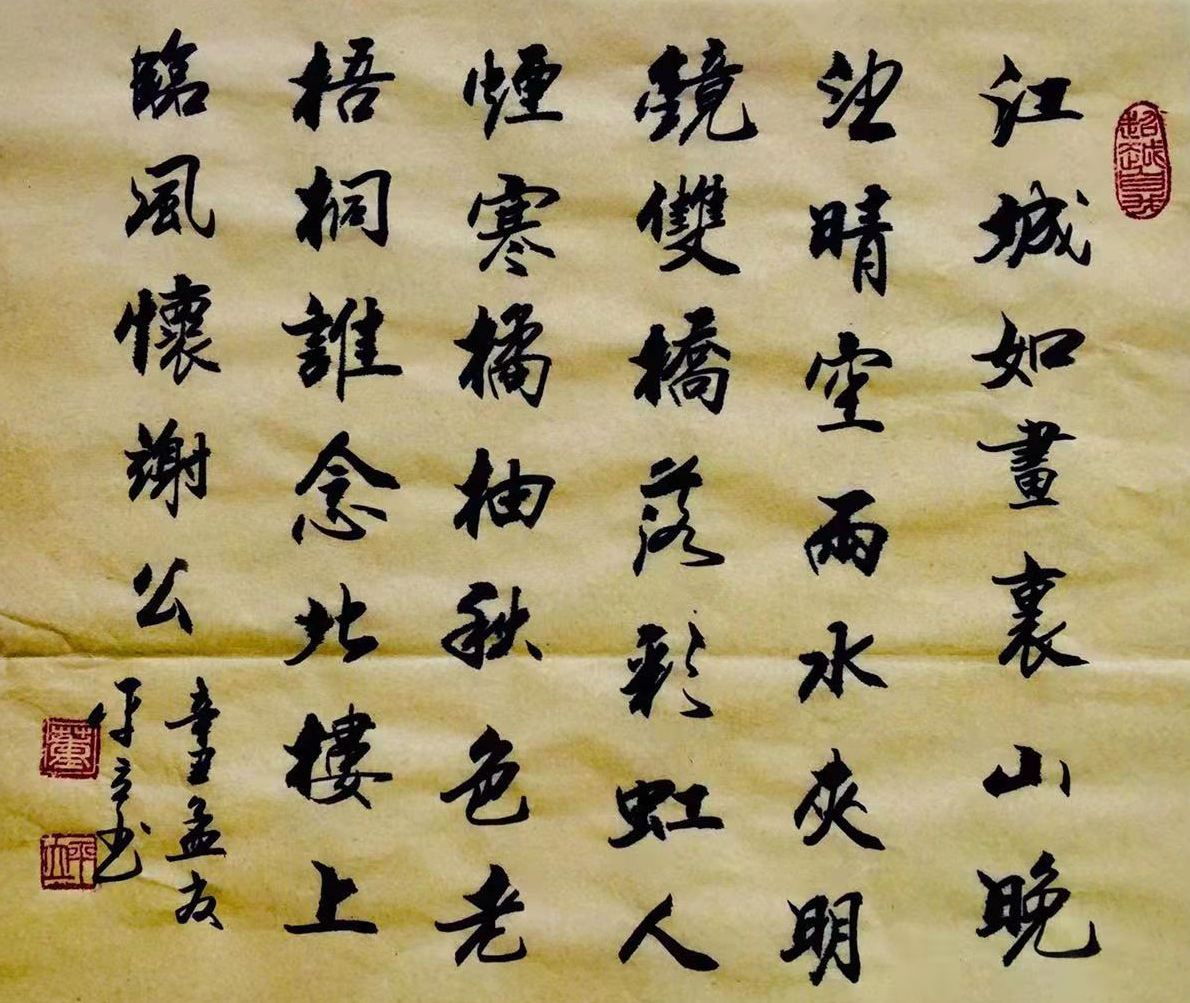 江城如畫裏山晚
望晴空雨水夾明
鏡雙橋落彩虹人
煙寒橘柚秋色老
梧桐誰念北樓上
臨風懷謝公
辛丑孟夏
平立书
董
平立